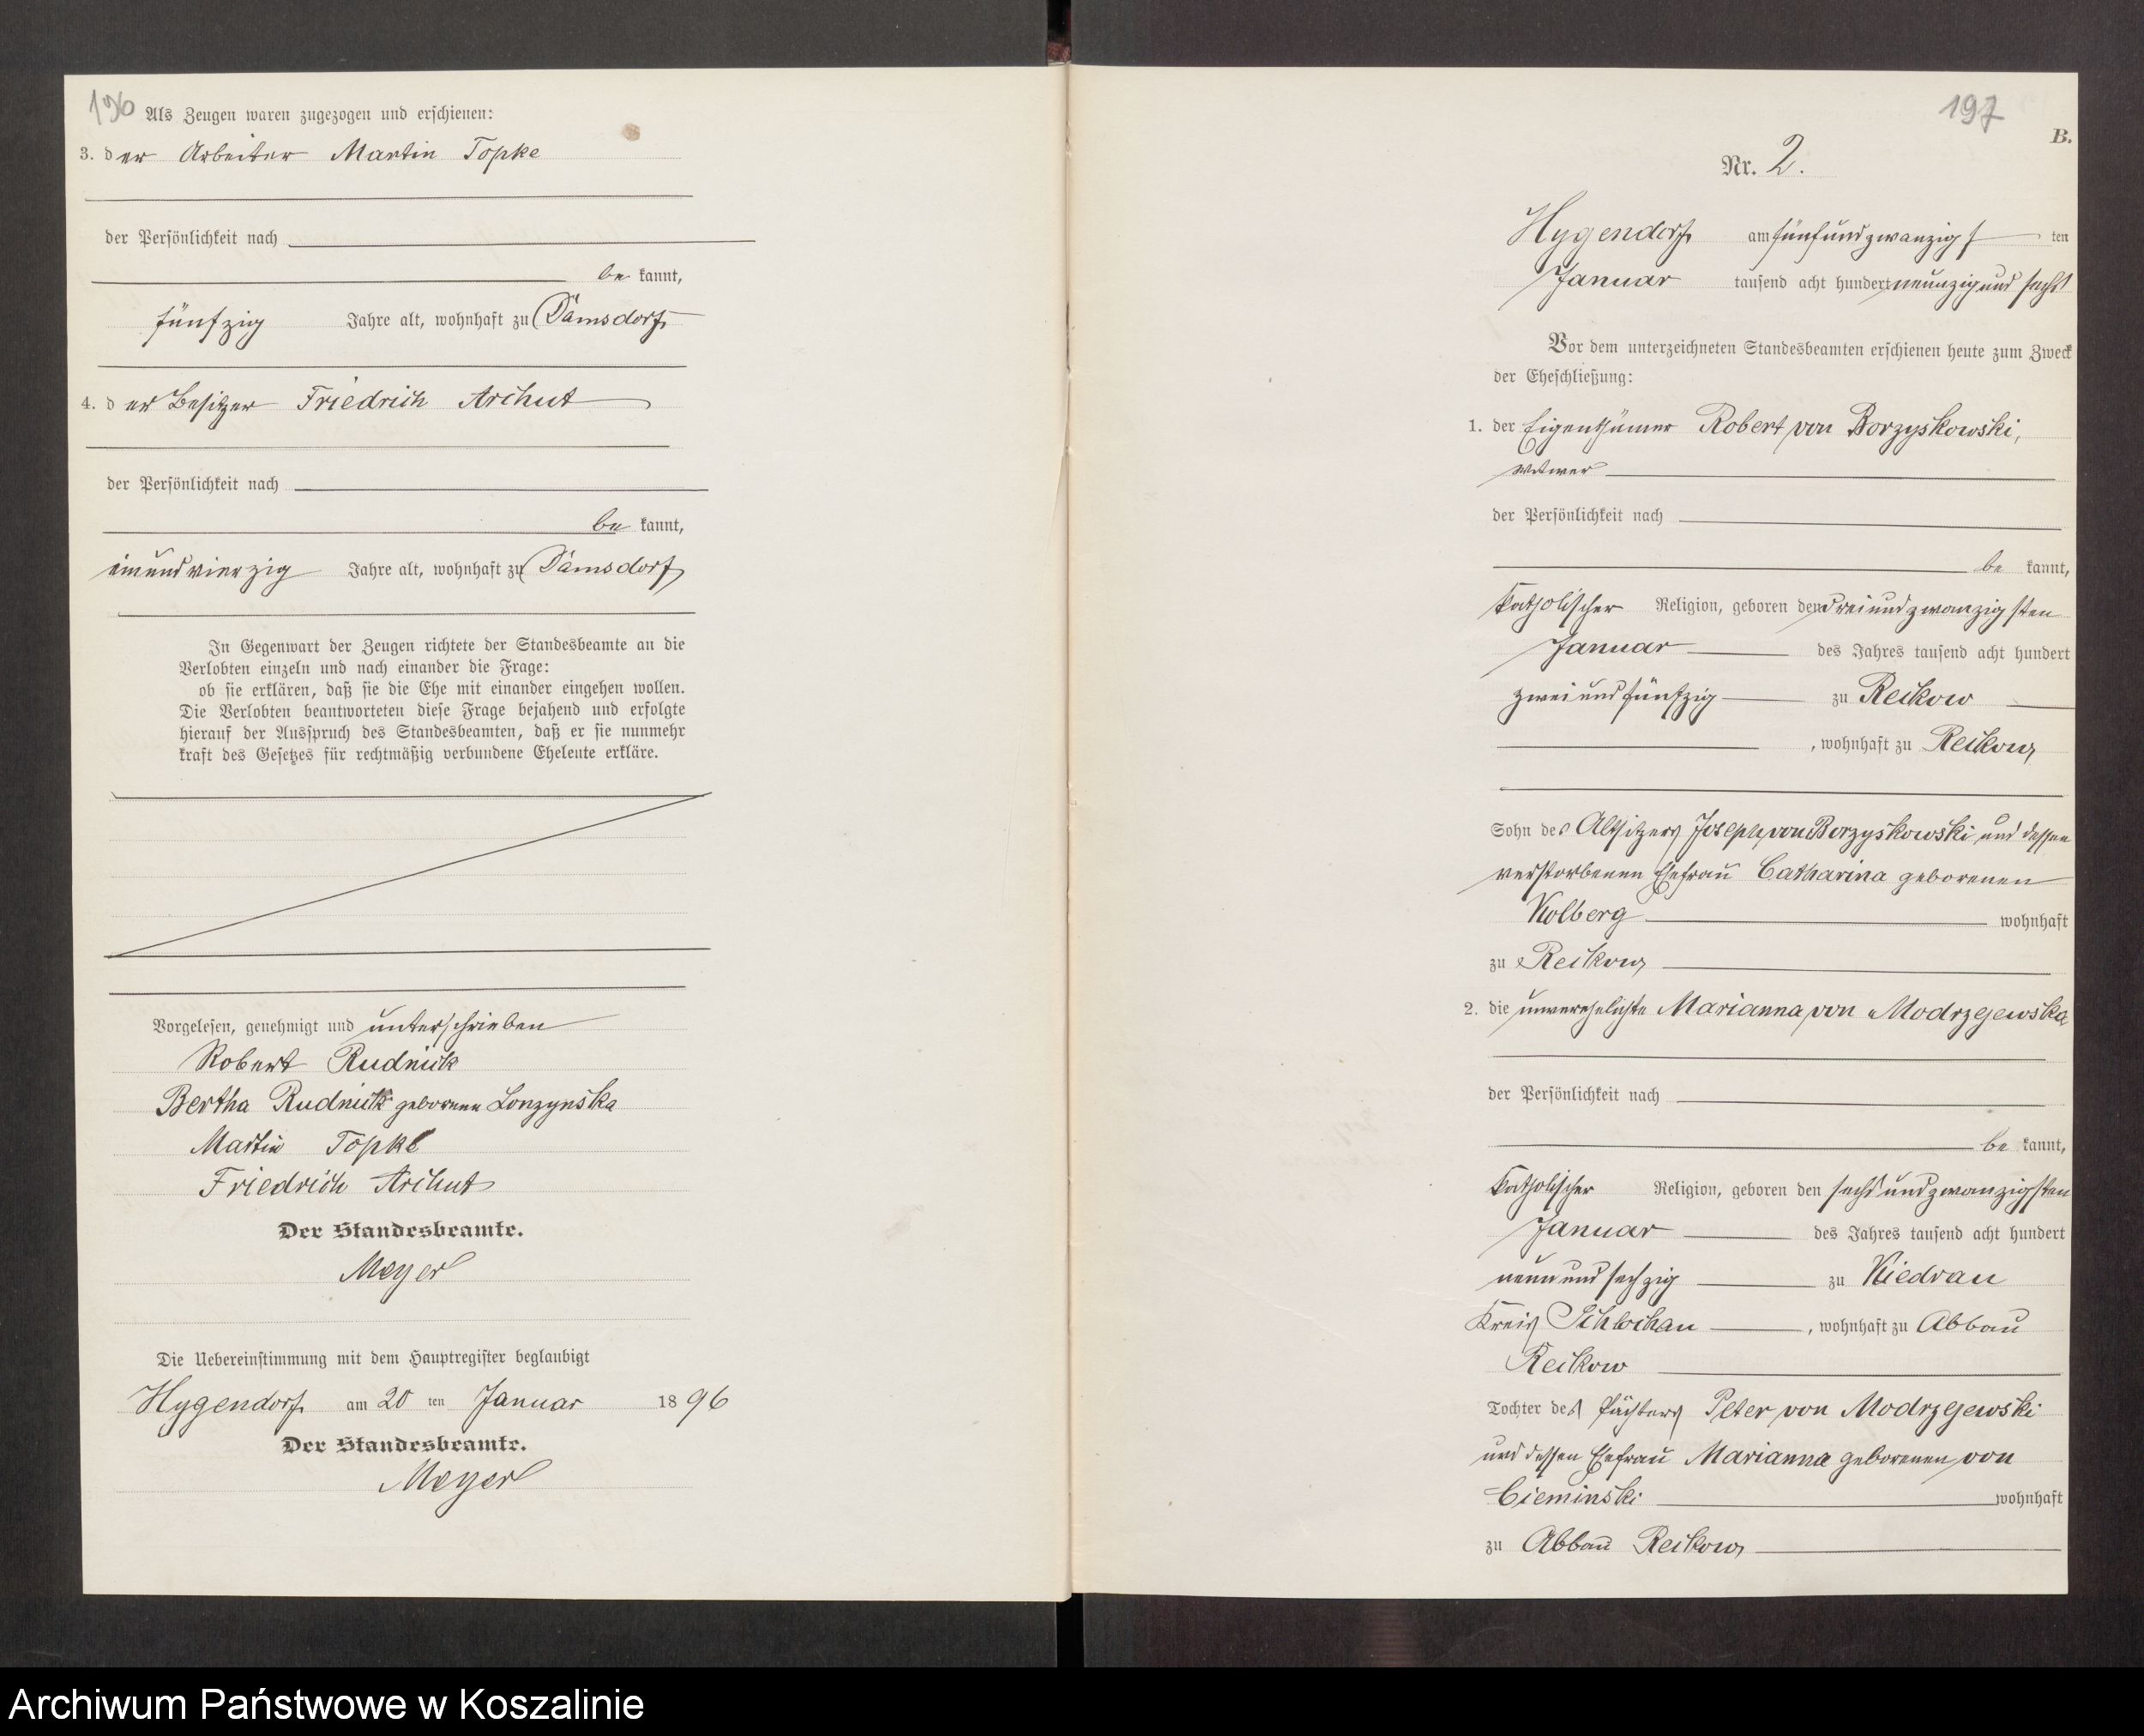 196
Als Zeugen waren zugezogen und erschienen:
3. der Arbeiter Martin Topke
der Persönlichkeit nach
be kannt,
fünfzig Jahre alt, wohnhaft zu Damsdorf
4. der Besitzer Friedrich Archut
der Persönlichkeit nach
be kannt,
einundvierzig Jahre alt, wohnhaft zu Damsdorf
In Gegenwart der Zeugen richtete der Standesbeamte an die
Verlobten einzeln und nach einander die Frage:
ob sie erklären, daß sie die Ehe mit einander eingehen wollen.
Die Verlobten beantworteten diese Frage bejahend und erfolgte
hierauf der Ausspruch des Standesbeamten, daß er sie nunmehr
kraft des Gesetzes für rechtmäßig verbundene Eheleute erkläre.
Vorgelesen, genehmigt und unterschrieben
Robert Rudnick
Bertha Rudnick geborene Lonzynska
Martin Topke
Friedrich Archut
Der Standesbeamte.
Meyer
Die Uebereinstimmung mit dem Hauptregister beglaubigt
Hygendorf am 20 ten Januar 1896
Der Standesbeamte.
Meyer
197
B.
Nr. 2.
Hygendorf am fünfundzwanzigsten
Januar tausend acht hundert neunzig und sechs
Vor dem unterzeichneten Standesbeamten erschienen heute zum Zweck
der Eheschließung:
1. der Eigenthümer Robert von Borzyskowski,
Witwer
der Persönlichkeit nach
be kannt,
katholischer Religion, geboren den dreiundzwanzigsten
Januar des Jahres tausend acht hundert
zweiundfünfzig zu Reckow
, wohnhaft zu Reckow
Sohn des Altsitzers Joseph von Borzyskowski und dessen
verstorbenen Ehefrau Catharina geborenen
Kolberg wohnhaft
zu Reckow
2. die unverehelichte Marianna von Modrzejewska
der Persönlichkeit nach
be kannt,
katholischer Religion, geboren den sechsundzwanzigsten
Januar des Jahres tausend acht hundert
neunundsechzig zu Kiedrau
Kreis Schlochau, wohnhaft zu Abbau
Reckow
Tochter des Pächters Peter von Modrzejewski
und dessen Ehefrau Marianna geborenen von
Cieminski wohnhaft
zu Abbau Reckow
Archiwum Państwowe w Koszalinie